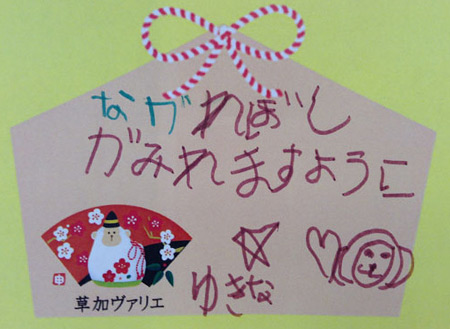 ながれぼし
がみれますように
ゆきな
申
草加ヴァリエ